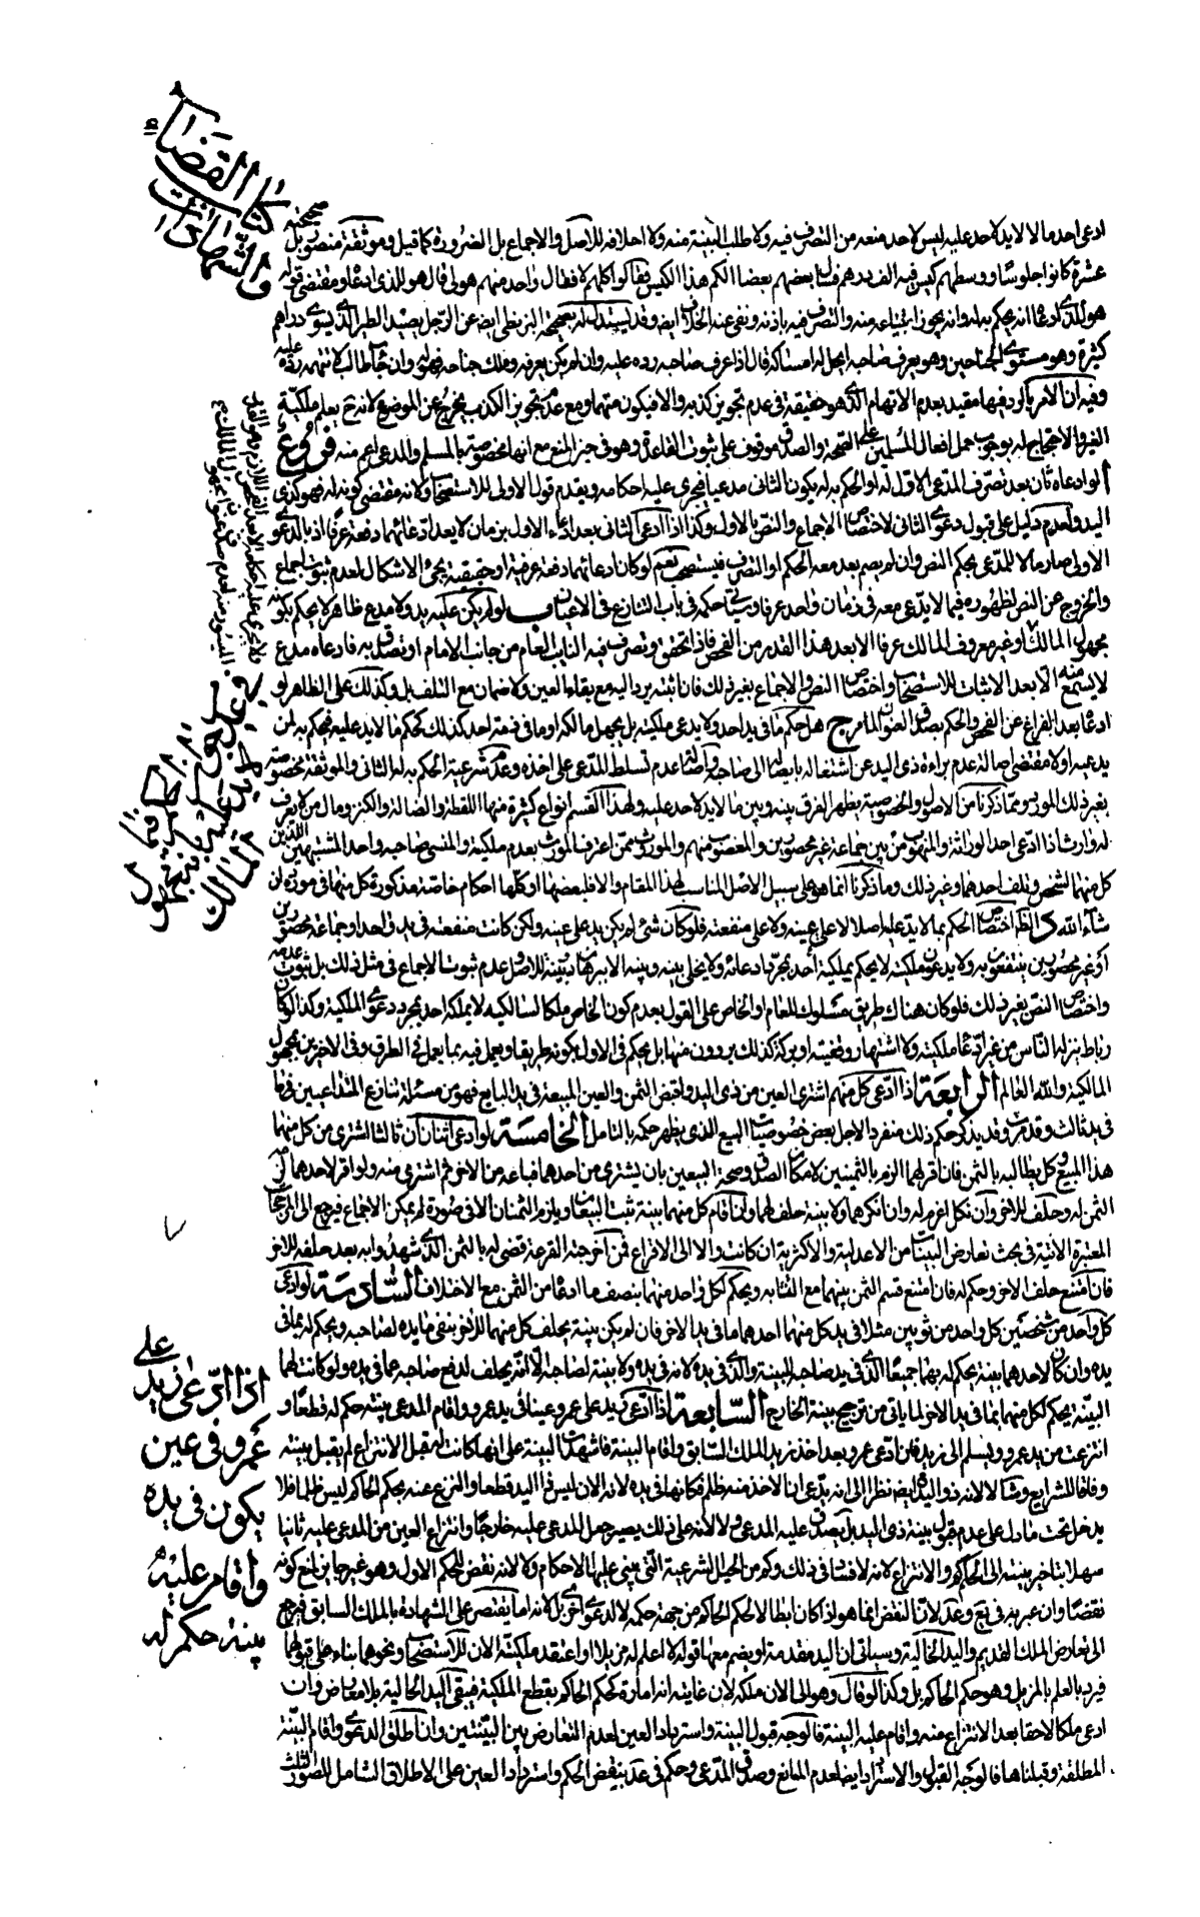 كتاب القضاء
والشهادات
ادعى احد مالا لا يد لاحد عليه ليس لاحد منعه من التصرف فيه ولا طلب البينة منه ولا احلافه للاصل والاجماع بل الضرورة كما قيل وموثقة منصور بل صحيحته
عشرة كانوا جلوسا ووسطهم كيس فيه الف درهم فسال بعضهم بعضا الكم هذا الكيس فقالوا كلهم لا فقال واحد منهم هو لى قال هو للذى ادعاه ومقتضى قوله
هو للذى ادعاه انه يحكم به له وانه يجوز ابتياعه منه والتصرف فيه باذنه ونفى عنه الخلاف ايضا وقد يستدل له بصحيحة البزنطى ايضا عن الرجل يصيد الطير الذى يسوى دراهم
كثيرة وهو مستوى الجناحين وهو يعرف صاحبه ايحل له امساكه قال اذا عرف صاحبه رده عليه وان لم يكن يعرفه وملك جناحه فهو له وان جاء طالب لا تتهمه رده عليه
وفيه ان الامر بالرد فيها مقيد بعدم الاتهام الذى هو حقيقة فى عدم تجويز كذبه والا فيكون متهما ومع عدم تجويز الكذب يخرج عن الموضوع لانه يعلم ملكية
الغير والاحتجاج له بوجوب حمل افعال المسلمين على الصحة والصدق موقوف على ثبوت القاعدة وهو فى حيز المنع مع انها مخصوصة بالمسلم والمدعى اعم منه فروع
ا لو ادعاه ثان بعد تصرف المدعى الاول له او الحكم به له يكون الثانى مدعيا فيجرى عليه احكامه ويقدم قول الاول للاستصحاب ولانه مقتضى كونه له فهو كذى
اليد ولعدم دليل على قبول دعوى الثانى لاختصاص الاجماع والنص بالاول وكذا اذا ادعى الثانى بعد ادعاء الاول بزمان لا يعد ادعائهما دفعة عرفا اذ بالدعوى
الاولى صار مالا للمدعى بحكم النص وان لم يضم بعد معه الحكم او التصرف فيستصحب نعم لو كان ادعائهما دفعة عرفية او حقيقية يجىء الاشكال لعدم ثبوت اجماع
والخروج عن النص لظهوره فيما لا يدعى معه فى زمان واحد عرفا وسياتى حكمه فى باب التنازع فى الاعيان ب لو لم يكن عليه يد ولا مدع ظاهر لا يحكم بكونه
مجهول المالك او غير معروف المالك عرفا الا بعد هذا القدر من الفحص فاذا تحقق وتصرف فيه النائب العام من جانب الامام او تصدق به فادعاه مدع
لا يسمع منه الا بعد الاثبات للاستصحاب واختصاص النص والاجماع بغير ذلك فان اثبته يرد اليه مع بقاء العين ولا ضمان مع التلف بل وكذلك على الظاهر لو
ادعاه بعد الفراغ عن الفحص والحكم بصدق العنوان المامر ج هل حكم ما فى يد احد ولا يدعى ملكيته بل يجهل مالكه او ما فى ذمة احد كذلك كحكم ما لا يد عليه فيحكم به لمن
يدعيه او لا مقتضى اصالة عدم براءة ذى اليد عن اشتغاله بايصاله الى صاحبه واصالة عدم تسلط المدعى على اخذه وعدم شرعية الحكم به له الثانى والموثقة مخصوصة
بغير ذلك المورد ومما ذكرنا من الاصول والخصوصية يظهر الفرق بينه وبين ما لا يد لاحد عليه ولهذا القسم انواع كثيرة منها اللقطة والضالة والكنز ومال من لا يعرف
له وارث اذا ادعى احد الوراثة والمنهوب من بين جماعة غير محصورين والمغصوب منهم والموروث ممن اعترف المورث بعدم ملكيته والمنسى صاحبه واحد المشتبهين اللذين
كل منهما لشخص وتلف احدهما وغير ذلك وما ذكرنا انما هو على سبيل الاصل المناسب لهذا المقام والا فلبعضها او كلها احكام خاصة مذكورة كل منها فى مورده ان
شاء الله د الظاهر اختصاص الحكم بما لا يد عليه اصلا لا على عينه ولا على منفعته فلو كان شىء لم يكن يد على عينه ولكن كانت منفعته فى يد واحد او جماعة محصورين
او غير محصورين ينتفعون به ولا يدعون ملكيته لا يحكم بملكية احد بمجرد ادعائه ولا يخلى بينه وبينه الا ببرهان بينة للاصل وعدم ثبوت الاجماع فى مثل ذلك بل ثبوت عدمه
واختصاص النص بغير ذلك فلو كان هناك طريق مسلوك للعام او الخاص على القول بعدم كون الخاص ملكا لسالكيه لا يملكه احد بمجرد دعوى الملكية وكذا لو كان
رباط ينزله الناس من غير ادعاء ملكيته ولا اشتهار وقفيته او بركة كذلك يردون منها بل يحكم فى الاول بكونه طريقا ويعمل فيه بما يعمل فى الطرق وفى الاخيرين بمجهول
المالكية والله العالم الرابعة اذا ادعى كل منهم اشترى العين من ذى اليد واقبض الثمن والعين المبيعة فى يد البايع فهو من مسئلة تنازع المتداعيين فى ما
فى يد ثالث وقد مرت وقد يذكر حكم ذلك منفردا لاجل بعض خصوصيات البيع الذى يظهر حكمه بالتامل الخامسة لو ادعى اثنان ان ثالثا اشترى من كل منهما
هذا المبيع وكل يطالبه بالثمن فان اقر لهما الزم بالثمنين لامكان الصدق وصحة البيعين بان يشترى من احدهما فباعه من الاخر ثم اشترى منه ولو اقر لاحدهما لزم
الثمن له وحلف للاخر وان نكل اغرم له وان انكرهما ولا بينة حلف لهما وان اقام كل منهما بينة ثبت البيعان ويلزم الثمنان الا فى صورة لم يمكن الاجتماع فيرجع الى المرجحات
المعتبرة الاتية فى بحث تعارض البينات من الاعدلية والاكثرية ان كانت والا الى الاقراع فمن اخرجته القرعة قضى له بالثمن الذى شهدوا به بعد حلفه للاخر
فان امتنع حلف الاخر وحكم له فان امتنع قسم الثمن بينهما مع التشابه ويحكم لكل واحد منهما بنصف ما ادعاه من الثمن مع الاختلاف السادسة لو ادعى
كل واحد من شخصين كل واحد من ثوبين مثلا فى يد كل منهما احدهما ما فى يد الاخر فان لم يكن بينة يحلف كل منهما للاخر بنفى ما يده لصاحبه ويحكم له بما فى
يده وان كان لاحدهما بينة يحكم له بهما جميعا الذى فى يد صاحبه للبينة والذى فى يده لانه فى يده ولا بينة لصاحبه الا انه يحلف لدفع صاحبه عما فى يده ولو كانت لهما
البينة يحكم لكل منهما بما فى يد الاخر لما ياتى من ترجيح بينة الخارج السابعة اذا ادعى زيد على عمرو عينا فى يد عمرو واقام المدعى بينة حكم له قطعا و
انتزعت من يد عمرو ويسلم الى زيد فان ادعى عمرو بعد اخذ زيد الملك السابق واقام البينة فان شهدت البينة على انها كانت له قبل الانتزاع لم يقبل بينته
وفاقا للشرايع وشا لا لانه ذو اليد ايضا نظرا الى انه يدعى ان الاخذ منه ظلم فكانها فى يده لانه الان ليس ذا اليد قطعا والنزع عنه بحكم الحاكم ليس ظلما فلا
يدخل تحت ما دل على عدم قبول بينة ذى اليد بل يصدق عليه المدعى ولا لانه على ذلك يصير جعل المدعى عليه خارجا وانتزاع العين من المدعى عليه ثانيا
سهلا بتاخير بينته الى الحكم والانتزاع لانه لا فساد فى ذلك وكم من الحيل الشرعية التى يبنى عليها الاحكام ولا لانه نقض للحكم الاول وهو غير جايز لمنع كونه
نقضا وان عبر به فى يع وعد لان النقض انما هو لو كان ابطالا لحكم الحاكم من جهة حكمه لا لدعوى اخرى بل لانه اما يقتصر على الشهادة بالملك السابق فيرجع
الى تعارض الملك القديم واليد الحالية وسياتى ان اليد مقدمة او يضم معها قوله لا اعلم له مزيلا او اعتقد ملكيته الان للاستصحاب ونحوهما بناء على قبولها
فيرد بالعلم بالمزيل وهو حكم الحاكم بل وكذا لو قال وهو الى الان ملكه لان غايته انه امارة كحكم الحاكم بقطع الملكية فيبقى اليد الحالية بلا معارض وان
ادعى ملكا لاحقا بعد الانتزاع منه واقام عليه البينة فالوجه قبول البينة واسترداد العين لعدم التعارض بين البينتين وان اطلق الدعوى واقام البينة
المطلقة وقبلناها فالوجه القبول والاسترداد ايضا لعدم المانع وصدق المدعى وحكم فى عد بنقض الحكم واسترداد العين على الاطلاق الشامل للصور الثلث
على
اذا ادعى زيد
عمرو فى عين
يكون فى يده
واقام عليه
بينة حكم له